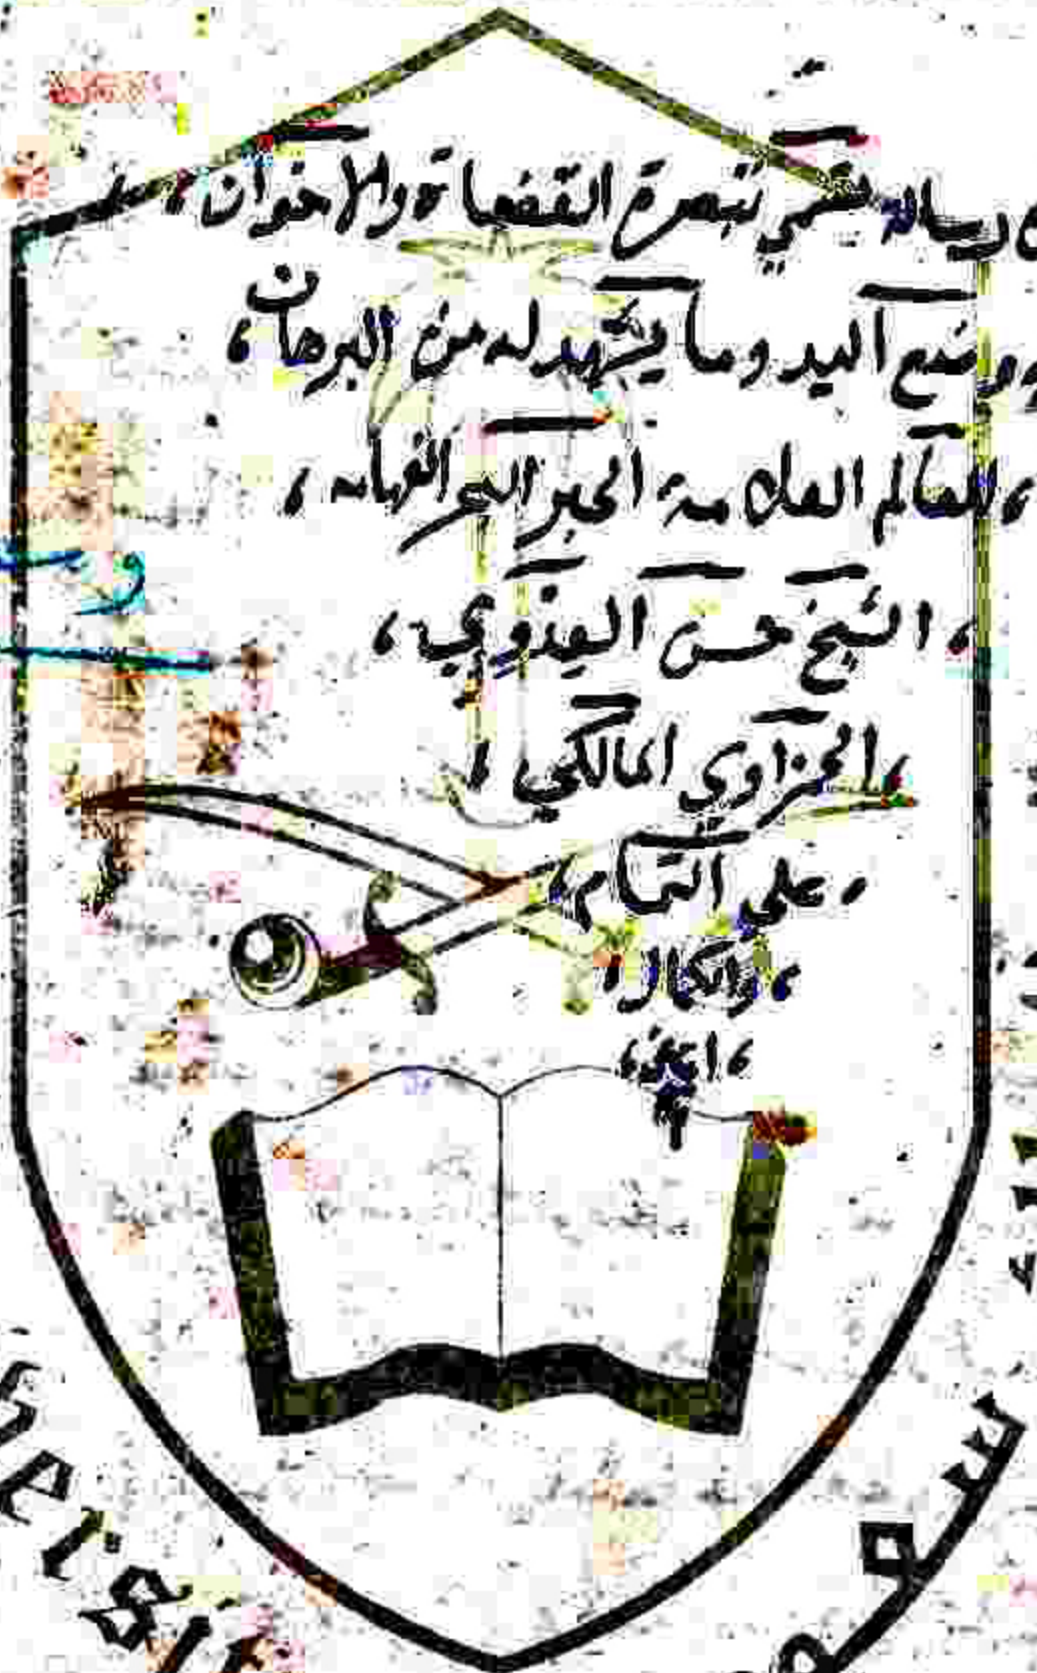 رساله تسمي تبصرة القضاة والاخوان،
وضع اليد وما يشهد له من البرهان،
،للعالم العلامة الحبر البحر الفهامه،
، الشيخ حسن العدوي،
،الحمزاوي المالكي،
، علي التمام،
،والكمال،
،امين،